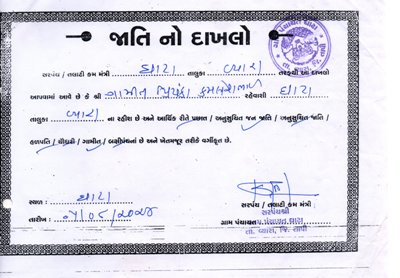 જાતિ નો દાખલો
સરપંચ / તલાટી કમ મંત્રી ઘાટા તાલુકા વ્યારા તરફથી આ દાખલો
આપવામાં આવે છે કે શ્રી ગામીત પ્રિયંકા કમલેશભાઈ રહેવાસી ઘાટા
તાલુકા વ્યારા ના રહીશ છે અને આર્થિક રીતે પછાત / અનુસુચિત જન જાતિ / અનુસુચિત જાતિ /
હળપતિ / ચૌધરી / ગામીત / બક્ષીપંચનાં છે અને ખેતમજૂર તરીકે વર્ગીકૃત છે.
સ્થળ : ઘાટા
તારીખ :
સરપંચ / તલાટી કમ મંત્રી
સરપંચશ્રી
ગ્રામ પંચાયત
તા. વ્યારા, જિ. તાપી